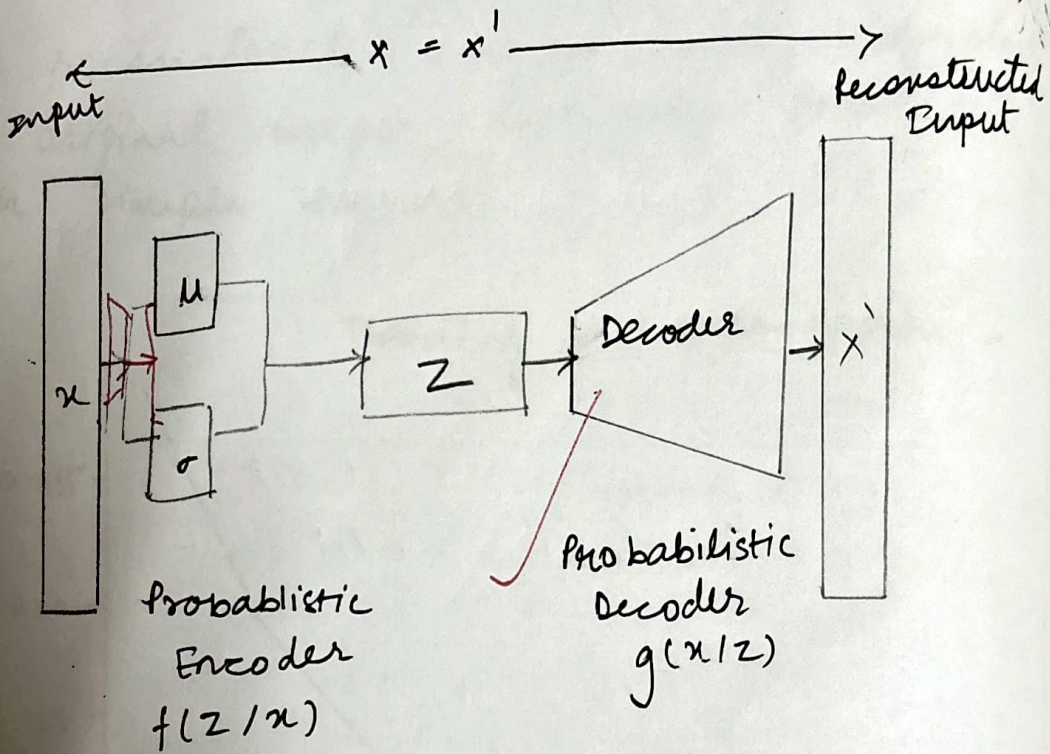 x = x'
Input
Reconstructed
Input
x
μ
σ
Z
Decoder
x'
Probablistic
Encoder
f(Z/x)
Probabilistic
Decoder
g(x/z)